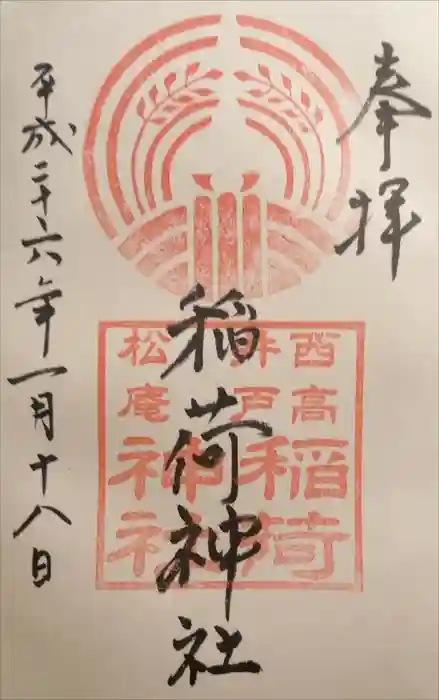 奉拝
稲荷神社
平成二十六年一月十八日
西高
井戸
松庵
稲荷
神社